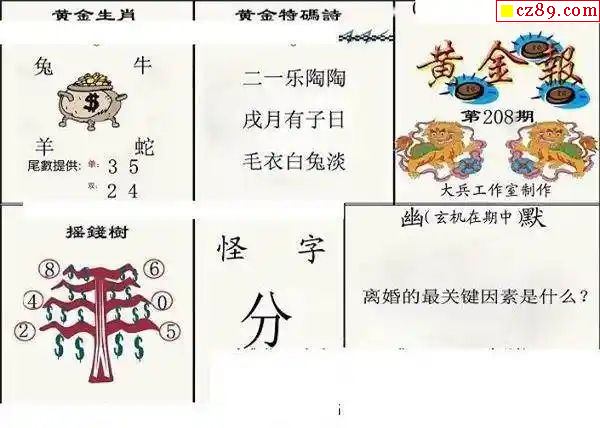 黄金生肖
兔 牛
羊 蛇
尾數提供: 单: 3 5
双: 2 4
黄金特碼詩
二一乐陶陶
戌月有子日
毛衣白兔淡
cz89.com
黄金報
第208期
大兵工作室制作
摇錢樹
8 6
4 0
2 5
怪 字
分
幽(玄机在期中)默
离婚的最关键因素是什么?